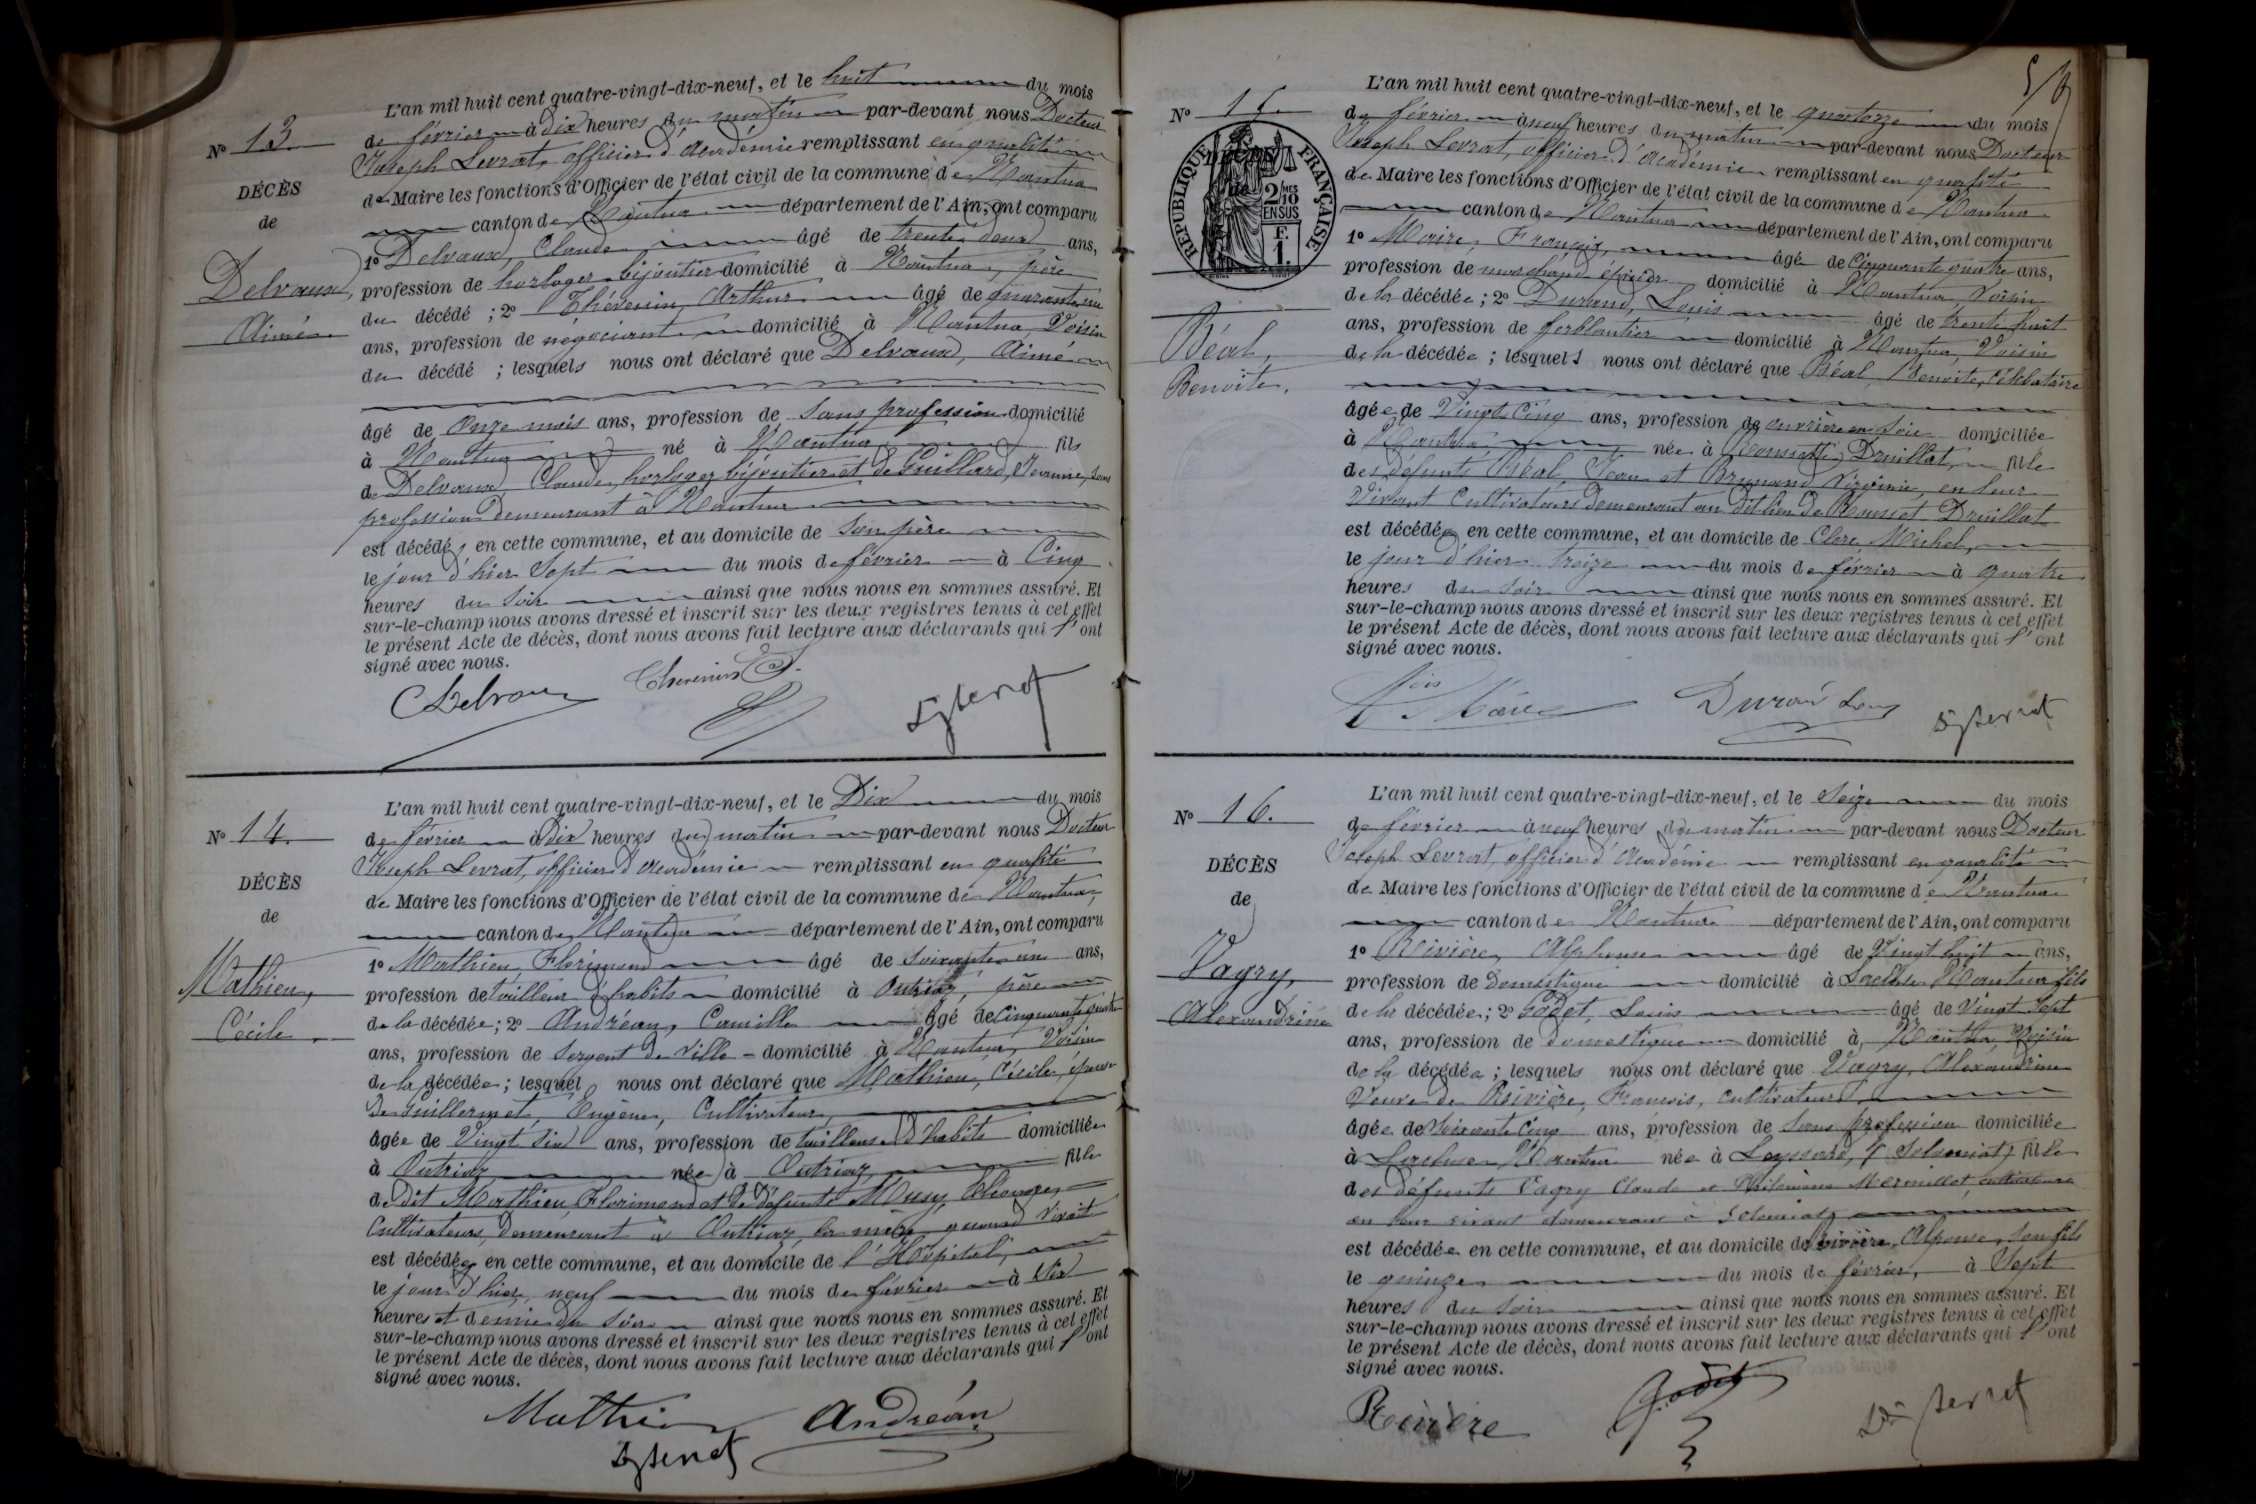 L'an mil huit cent quatre-vingt-dix-neuf, et le huit du mois
N° 13
de février à dix heures du matin par-devant nous Docteur
Joseph Levrat, officier d'académie remplissant en qualité
de Maire les fonctions d'Officier de l'état civil de la commune de Nantua
DÉCÈS
canton de Nantua département de l'Ain, ont comparu
de
1° Delvaux, Claude âgé de trente deux ans,
Delvaux,
profession de horloger bijoutier domicilié à Nantua, père
Aimé
du décédé ; 2° Thévenin, Arthur âgé de quarante un
ans, profession de négociant domicilié à Nantua, Voisin
du décédé ; lesquels nous ont déclaré que Delvaux, Aimé
âgé de Onze mois ans, profession de Sans profession domicilié
à Nantua né à Nantua fils
de Delvaux, Claude, horloger bijoutier et de Guillard, Jeanne, sans
profession demeurant à Nantua
est décédé en cette commune, et au domicile de Son père
le jour d'hier Sept du mois de février à Cinq
heures du Soir ainsi que nous nous en sommes assuré. Et
sur-le-champ nous avons dressé et inscrit sur les deux registres tenus à cet effet
le présent Acte de décès, dont nous avons fait lecture aux déclarants qui l'ont
signé avec nous.
CDelvaux Thevenin
L'an mil huit cent quatre-vingt-dix-neuf, et le Dix du mois
N° 14.
de février à Dix heures du matin par-devant nous Docteur
Joseph Levrat, officier d'académie remplissant en qualité
DÉCÈS
de Maire les fonctions d'Officier de l'état civil de la commune de Nantua,
de
canton de Nantua département de l'Ain, ont comparu
Mathieu,
1° Mathieu, Florimond âgé de Soixante un ans,
Cécile
profession de tailleur d'habits domicilié à Outriaz, père
de la décédée ; 2° Andréan, Camille âgé de Cinquante quatre
ans, profession de Sergent de Ville domicilié à Nantua, Voisin
de la décédée ; lesquel nous ont déclaré que Mathieu, Cécile, épouse
De Guillermet, Eugène, Cultivateur,
âgée de Vingt Six ans, profession de tailleuse d'habits domiciliée
à Outriaz née à Outriaz fille
de dit Mathieu, Florimond et de défunte Musy,
Cultivateurs, demeurant à Outriaz, la mère quand vivait
est décédée en cette commune, et au domicile de l'Hôpital,
le jour d'hier, neuf du mois de février à Six
heures et demie du Soir ainsi que nous nous en sommes assuré. Et
sur-le-champ nous avons dressé et inscrit sur les deux registres tenus à cet effet
le présent Acte de décès, dont nous avons fait lecture aux déclarants qui l'ont
signé avec nous.
Mathieu Andréan
L'an mil huit cent quatre-vingt-dix-neuf, et le quatorze du mois
N° 15.
de février à neuf heures du matin par-devant nous Docteur
Joseph Levrat, officier d'académie remplissant en qualité
de Maire les fonctions d'Officier de l'état civil de la commune de Nantua
RÉPUBLIQUE FRANÇAISE
DÉCÈS
de
2/10 MES EN SUS
F. 1.
canton de Nantua département de l'Ain, ont comparu
1° Maire, François, âgé de Cinquante quatre ans,
profession de marchand épicier domicilié à Nantua, Voisin
de la décédée ; 2° Durand, Louis âgé de trente huit
Béal,
ans, profession de ferblantier domicilié à Nantua, Voisin
Benoite.
de la décédée ; lesquels nous ont déclaré que Béal, Benoite, célibataire
âgée de Vingt Cinq ans, profession de ouvrière en soie domiciliée
à Nantua née à Druillat fille
des défunts Béal, Jean et Brunand Virginie, en leur
Vivant Cultivateurs demeurant au dit lieu de Druillat
est décédée en cette commune, et au domicile de Clerc Michel,
le jour d'hier treize du mois de février à quatre
heures du Soir ainsi que nous nous en sommes assuré. Et
sur-le-champ nous avons dressé et inscrit sur les deux registres tenus à cet effet
le présent Acte de décès, dont nous avons fait lecture aux déclarants qui l'ont
signé avec nous.
Durand Louis
L'an mil huit cent quatre-vingt-dix-neuf, et le Seize du mois
N° 16.
de février à neuf heures du matin par-devant nous Docteur
Joseph Levrat, officier d'Académie remplissant en qualité
DÉCÈS
de Maire les fonctions d'Officier de l'état civil de la commune de Nantua
de
canton de Nantua département de l'Ain, ont comparu
Vagry,
1° Rivière, Alphonse âgé de Vingt huit ans,
Alexandrine
profession de Domestique domicilié à Nantua fils
de la décédée ; 2° Godet, Louis âgé de Vingt Sept
ans, profession de domestique domicilié à Nantua, Voisin
de la décédée ; lesquels nous ont déclaré que Vagry, Alexandrine
Veuve de Rivière, François, cultivateur,
âgée de Soixante Cinq ans, profession de Sans profession domiciliée
à Nantua née à Leyssard, (Solomiat) fille
des défunts Vagry Claude et Mermillot, cultivateurs
en leur vivant demeurant à Solomiat
est décédée en cette commune, et au domicile de Rivière, Alphonse, son fils
le quinze du mois de février, à Sept
heures du Soir ainsi que nous nous en sommes assuré. Et
sur-le-champ nous avons dressé et inscrit sur les deux registres tenus à cet effet
le présent Acte de décès, dont nous avons fait lecture aux déclarants qui l'ont
signé avec nous.
Rivière Godet